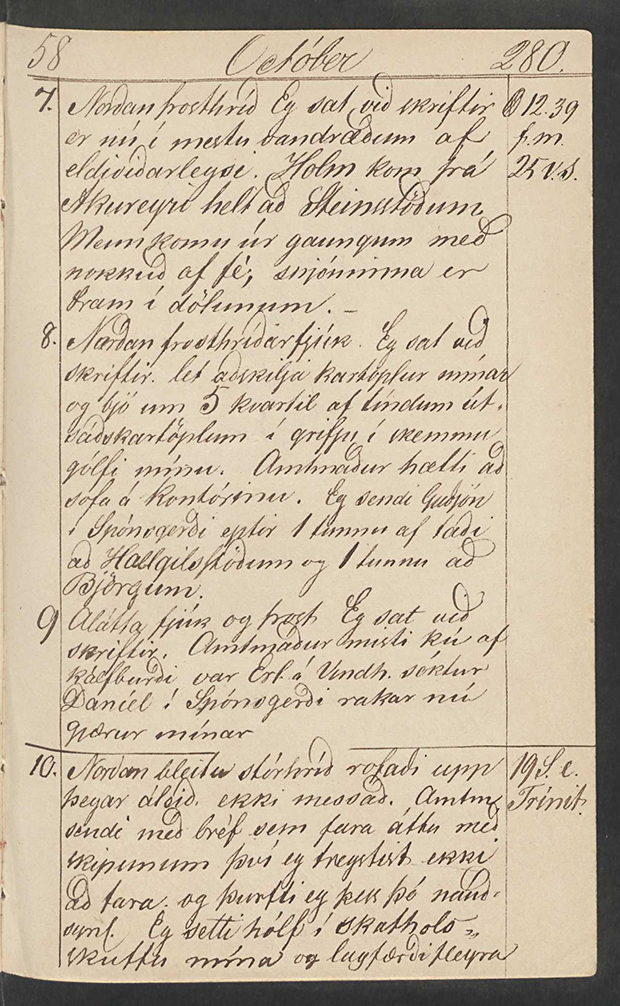 58 Octóber 280.
7. Nordan frosthríd Eg sat vid skriftir 12.39
er nú í mestu vandrædum af f.m.
eldividarleysi. Holm kom frá 25 v.s.
Akureyri helt ad Steinsstödum
Menn komu úr gaungum med
nokkud af fé, snjóminna er
fram í dölunum. –
8. Nordan frosthrídarfjúk. Eg sat vid
skriftir. lét adskilja kartöplur mínar
og bjó um 5 kvartil af tíndum út-
sádskartöplum í gryfju í skemmu
gólfi mínu. Amtmadur hætti ad
sofa á Kontórinu. Eg sendi Gudjón
í Spónsgerdi eptir 1 tunnu af tadi
ad Hallgilsstödum og 1 tunnu ad
Björgum.
9 Alátta fjúk og frost Eg sat vid
skriftir. Amtmadur misti kú af
kálfburdi var Erl. á Undh. sóktur
Daníel í Spónsgerdi rakar nú
gjærur mínar
10. Nordan bleitu stórhríd rofadi upp 19 S. e.
þegar áleid. ekki messad. Amtm Trínit.
sendi med bréf sem fara áttu med
skipunum því eg treystist ekki
ad fara. og þurfti eg þess þó naud-
synl. Eg setti hólf í skathols-
skuffu mína og lagfærdi fleyra